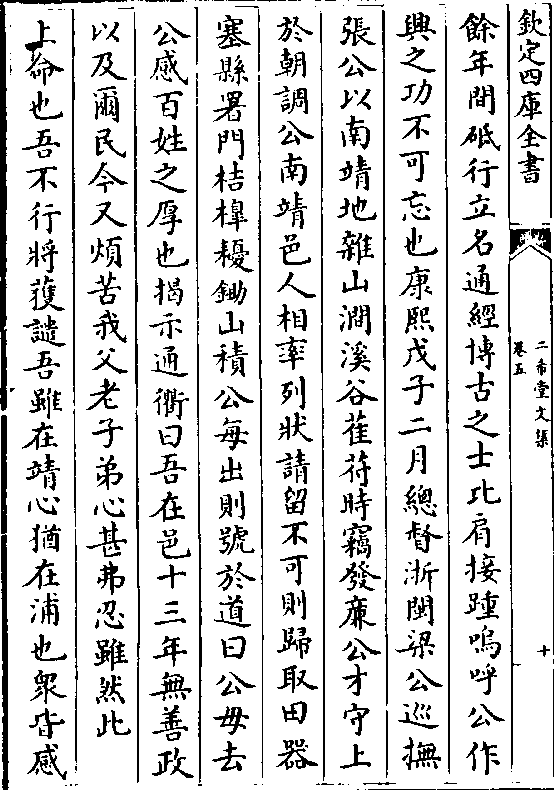 欽定四庫全書
二希堂文集
卷五
十
餘年間砥行立名通經博古之士比肩接踵嗚呼公作
興之功不可忘也康熙戊子二月總督浙閩梁公巡撫
張公以南靖地雜山澗溪谷萑苻時竊發廉公才守上
於朝調公南靖邑人相率列狀請留不可則歸取田器
塞縣署門桔槹耰鋤山積公每出則號於道曰公毋去
公感百姓之厚也揭示通衢曰吾在邑十三年無善政
以及爾民今又煩苦我父老子弟心甚弗忍雖然此
上命也吾不行將獲譴吾雖在靖心猶在浦也衆皆感